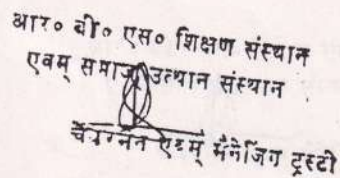 आर० बी० एस० शिक्षण संस्थान
एवम् समाज उत्थान संस्थान
चेयरमैन एवम् मैनेजिंग ट्रस्टी